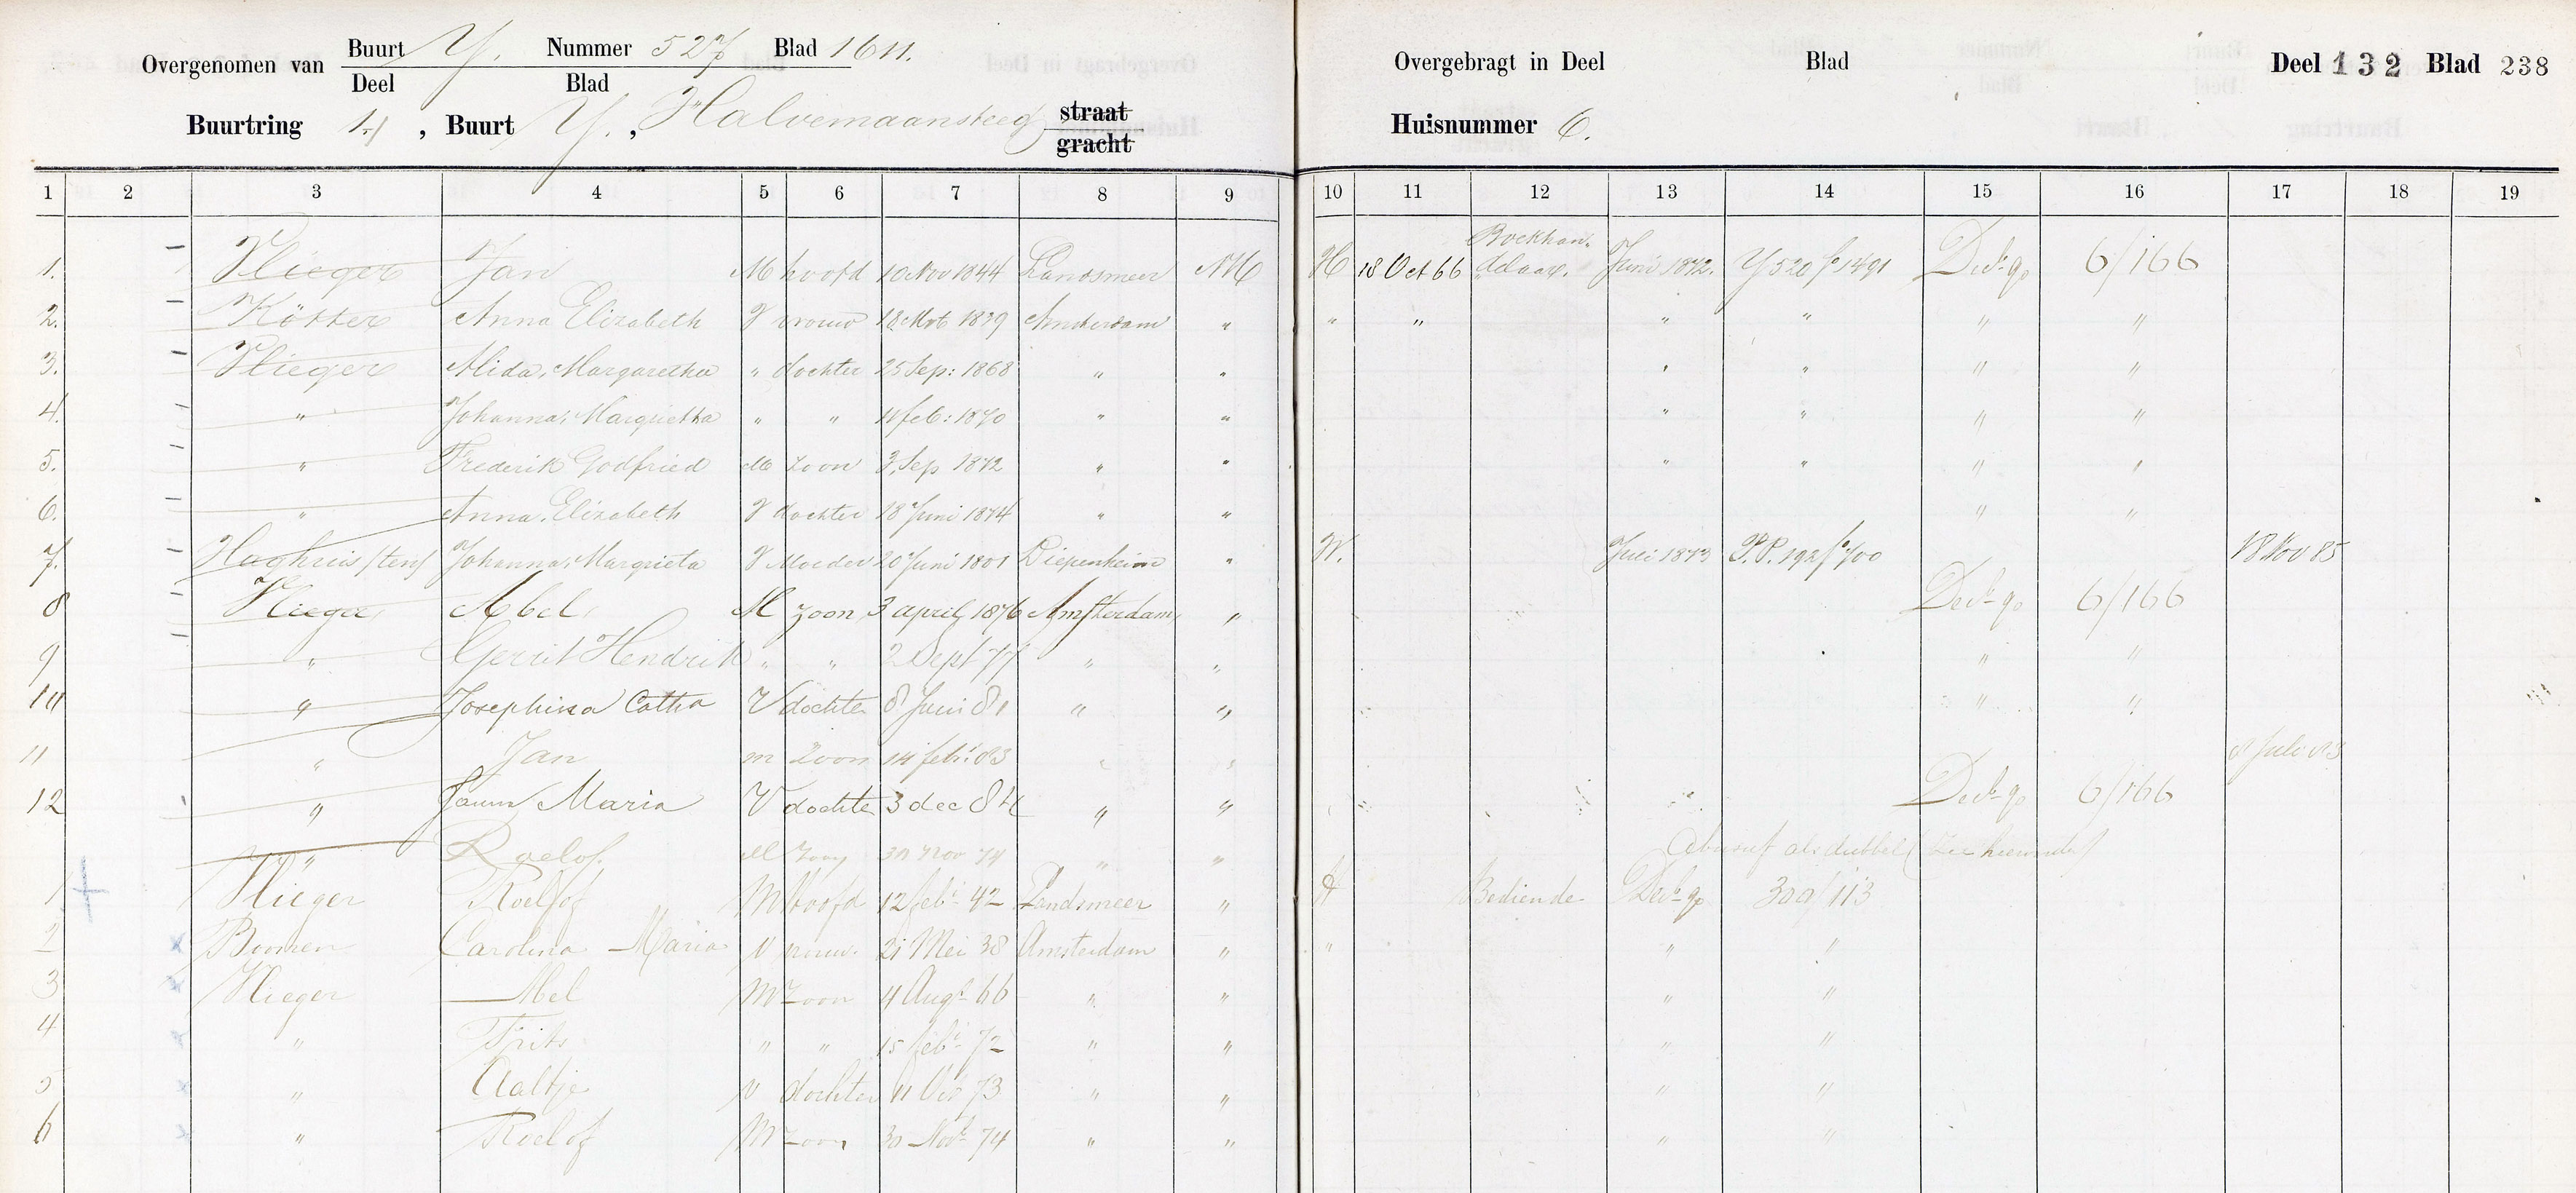 Overgenomen van Buurt Y. Nummer 527 Blad 1611.
Deel Blad
Buurtring 4, Buurt Y., Halvemaansteeg straat gracht
Overgebragt in Deel Blad Deel 132 Blad 238
Huisnummer 6.
1 2 3 4 5 6 7 8 9 10 11 12 13 14 15 16 17 18 19
1. Vlieger Jan M hoofd 10 Nov 1844 Landsmeer NH H 18 Oct 66 Boekhandelaar. Juni 1872. Y 520 fo 1491 Dec. 90 6/166
2. Köster Anna Elizabeth V vrouw 18 Mrt 1839 Amsterdam " " " " " " "
3. Vlieger Alida, Margaretha " dochter 25 Sep: 1868 " " " " " "
4. " Johanna, Margrietha " " 11 feb: 1870 " " " " " "
5. " Frederik Godfried M zoon 3 Sep 1872 " " " " " "
6. " Anna, Elizabeth V dochter 18 Juni 1874 " " " "
7. Johanna, Margrieta V Moeder 20 Juni 1801 Diepenheim " W. Juli 1873 P.P. 192 fo 700 18 Nov 85
8 Vlieger Abel M zoon 3 april 1876 Amsterdam " Dec. 90 6/166
9 " Gerrit Hendrik " " 2 Sept 77 " " " "
10 " Josephina Catha V dochter 8 Juni 81 " " " "
11 " Jan m zoon 14 feb. 83 " " Juli 83
12 " Maria V dochter 3 dec 84 " " Dec. 90 6/166
" Roelof M zoon 30 Nov 74 " " abusief als dubbel (zie hieronder)
1 Vlieger Roelof M hoofd 12 feb. 42 Landsmeer " H Bediende Dec. 90 309/113
2 Boomen Carolina Maria V vrouw. 21 Mei 38 Amsterdam " " " "
3 Vlieger Abel M zoon 4 Augt 66 " " " "
4 " Frits " " 15 feb. 72 " " " "
5 " Aaltje V dochter 11 Oct 73 " " " "
6 " Roelof M zoon 30 Nov. 74 " " " "